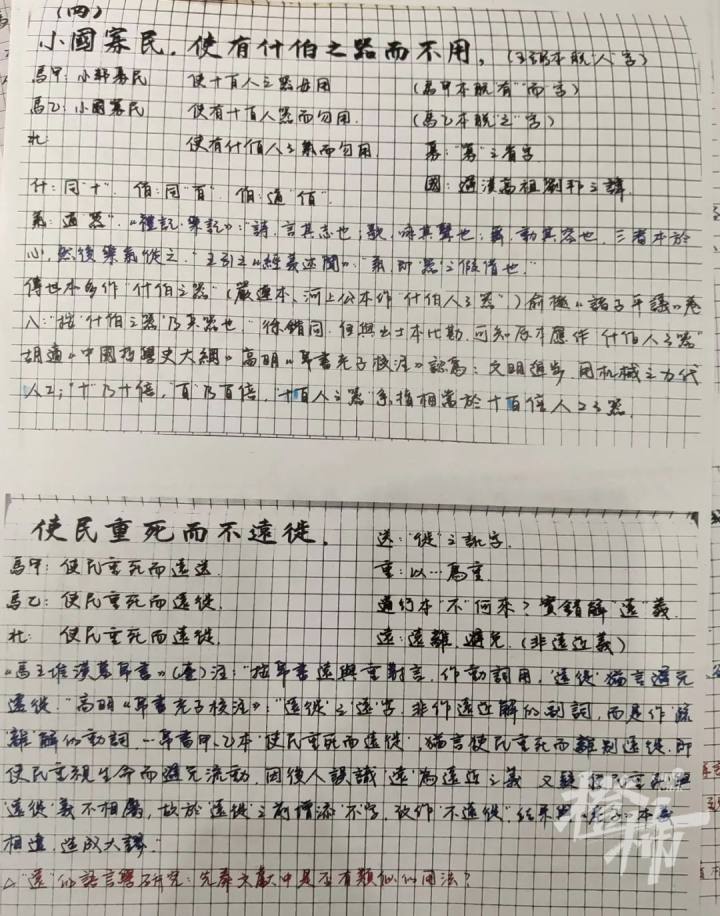 (四)
小國寡民,使有什伯之器而不用,(王弼本脫"人"字)
馬甲:小邦寡民 使十百人之器毋用 (馬甲本脫"有""而"字)
馬乙:小國寡民 使有十百人器而勿用. (馬乙本脫"之"字)
北: 使有什佰人之氣而勿用. 寡:"寡"之省字
國:避漢高祖劉邦之諱.
什:同"十". 佰:同"百". 伯:通"佰".
氣:通"器".《禮記·樂記》:"詩,言其志也;歌,咏其聲也;舞,動其容也.三者本於
心,然後樂氣從之."王引之《經義述聞》:"氣,即'器'之假借也."
傳世本多作"什伯之器"(嚴遵本、河上公本作"什伯人之器")俞樾《諸子平議》卷
八:"按'什伯之器'乃兵器也."徐鍇同.但與出土本比勘,可知原本應作"什伯人之器"
胡適《中國哲學史大綱》高明《帛書老子校注》認爲:文明進步,用机械之力代
人工;"十"乃十倍,"百"乃百倍,"十百人之器"系指相當於十百倍人工之器.
使民重死而不遠徙. 送:"徙"之訛字.
馬甲:使民重死而遠送. 重:以…爲重.
馬乙:使民重死而遠徙. 通行本"不"何來?實錯解"遠"義.
北: 使民重死而遠徙. 遠:遠離,避免(非遠近義)
《馬王堆漢墓帛書》(壹)注:"按帛書遠與重對言,作動詞用,'遠徙'猶言避免
遷徙."高明《帛書老子校注》:"'遠徙'之'遠'字,非作遠近解的副詞,而是作疏
離解的動詞.…帛書甲、乙本'使民重死而遠徙',猶言使民重死而離別遷徙.即
使民重視生命而避免流動.因後人誤識'遠'為遠近之義,又疑
遠徙'義不相屬,故於'遠徙'之前增添'不'字,改作'不遠徙',結果與
相違,造成大謬."
△"遠"的語言學研究:先秦文獻中是否有類似的用法?